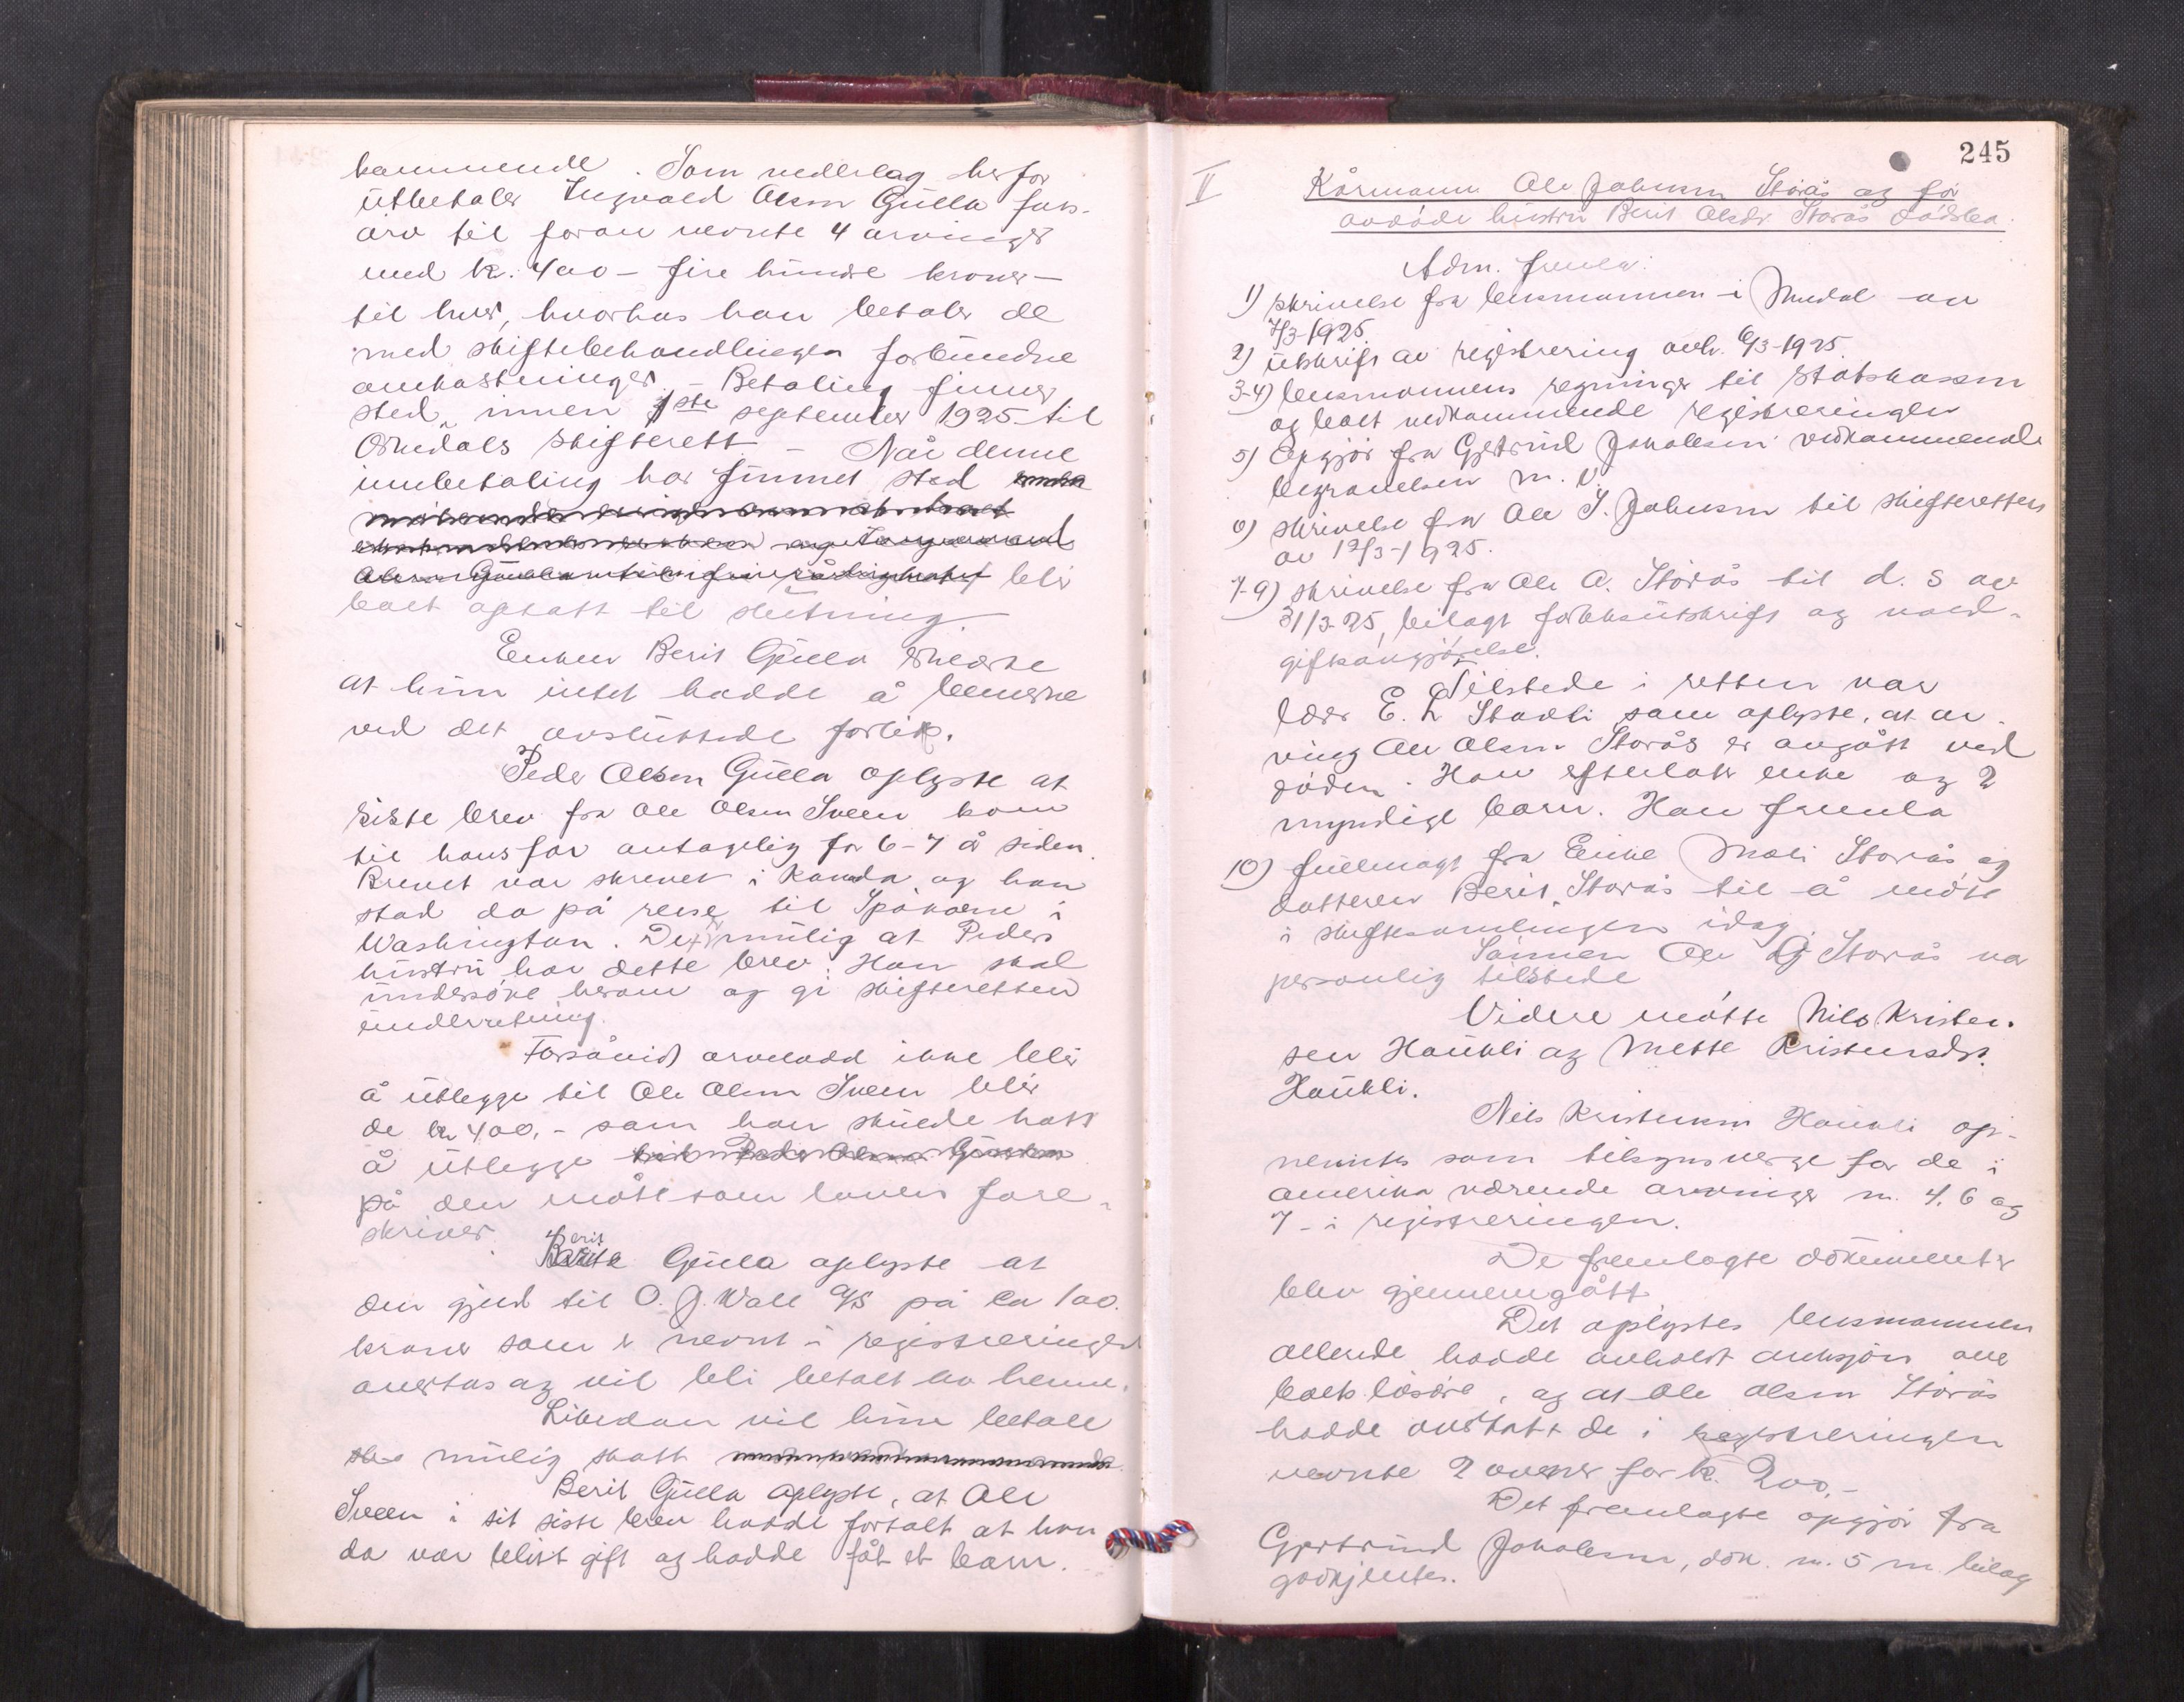 kommende. Som vederlag herfor
utbetaler Ingvald Olsen Gulla fars-
arv til foran nevnte 4 arvinger
med kr. 400 – fire hundre kroner –
til hver, hvorhos han betaler de
med skiftebehandlingen forbundne
omkostninger. – Betaling finner
sted innen 1ste september 1925 til
Orkedals skifterett. – Når denne
innbetaling har funnet sted
blir
boet optatt til slutning.
Enken Berit Gulla erklærte
at hun intet hadde å bemerke
ved det avsluttede forlik.
Peder Olsen Gulla oplyste at
siste brev fra Ole Olsen Sveen kom
til hans far antagelig for 6-7 år siden.
Brevet var skrevet i Kanada og han
stod da på reise til Spokane i
Washington. Det er mulig at Peders
hustru har dette brev. Han skal
undersøke herom og gi skifteretten
underretning.
Forsåvidt arvelodd ikke blir
å utlegge til Ole Olsen Sveen blir
de kr 400,- som han skulde hatt
å utlegge til Peder Olsen Gulla
på den måte som loven fore-
skriver.
Berit Gulla oplyste at
den gjeld til O. J. Wall A/S på ca 100.
kroner som er nevnt i registreringen
overtas og vil bli betalt av henne.
Likedan vil hun betale
mulig skatt
Berit Gulla oplyste, at Ole
Sveen i sit siste brev hadde fortalt at han
da var blit gift og hadde fåt et barn.
245
II
Kårmann Ole Johnsen Storås og før
avdøde hustru Berit Olsdr. Storås dødsbo.
Adm. fremla:
1) skrivelse fra lensmannen i Meldal av
7/3-1925.
2) utskrift av registrering avh. 6/3-1925.
3-4) lensmannens regninger til statskassen
og boet vedkommende registreringen
5) Opgjør fra Gjertrud Jakobsen vedkommende
begravelsen m. v.
6) skrivelse fra Ole J. Johnsen til skifteretten
av 12/3-1925.
7-9) skrivelse fra Ole O. Storås til d. s av
31/3-25, bilagt folioutskrift og
giftsavgjørelse.
Tilstede i retten var
E. L Stokli som oplyste, at ar-
ving Ole Olsen Storås er avgått ved
døden. Han efterlot enke og 2
myndige barn. Han fremla
10) fullmagt fra Enke Mali Storås og
datteren Berit Storås til å møte
i skiftesamlingen idag.
Sønnen Ole O Storås var
personlig tilstede
Videre møtte Nils Kristen-
sen Haukli og Mette Kristensdr.
Haukli.
Nils Kristensen Haukli op-
nevntes som tilsynsverge for de i
Amerika værende arvinger nr. 4. 6 og
7 - i registreringen.
De fremlagte dokumenter
blev gjennemgått.
Det oplystes lensmannen
allerede hadde avholdt auksjon over
boets løsøre, og at Ole Olsen Storås
hadde overtatt de i registreringen
nevnte 2 ovner for kr. 200.-
Det fremlagte opgjør fra
Gjertrud Jakobsen, dok. nr. 5 m. bilag
godkjentes.